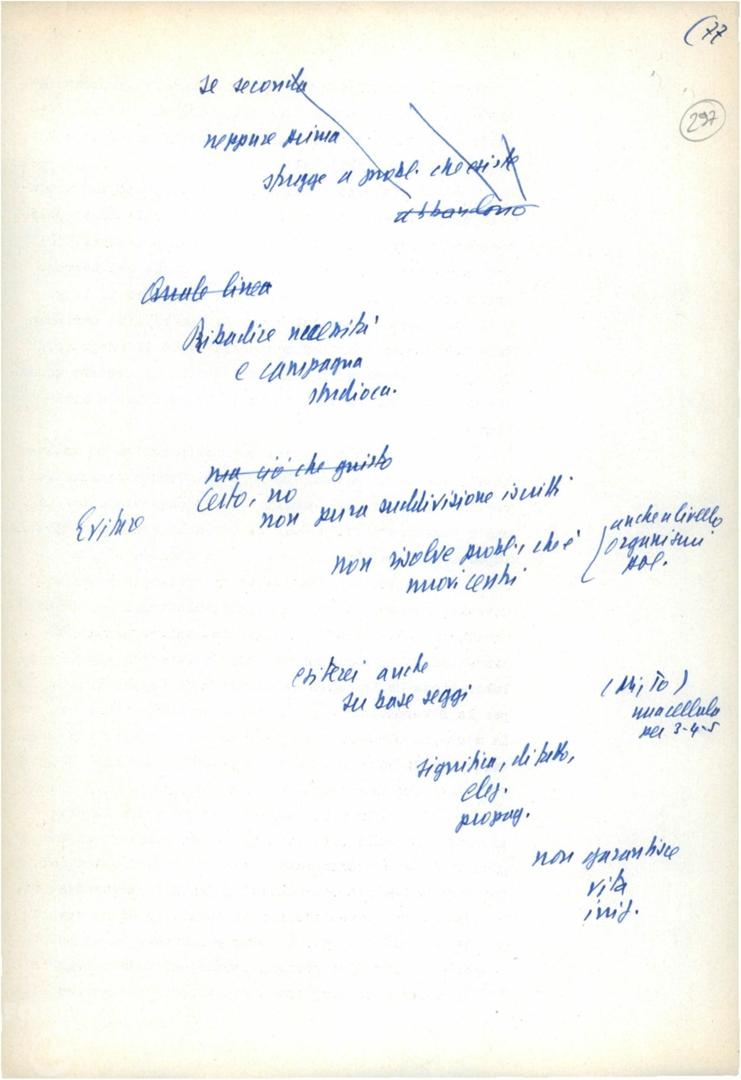 (77
297
se seconda
neppure prima
sfugge a probl. che esiste
abbandono
Quale linea
Ribadire necessità
e campagna
ma ciò che giusto
Certo, no
Evitare
non pura suddivisione iscritti
non risolve probl., che è
nuovi centri
anche a livello
organismi
pol.
esiterei anche
su base seggi
(Mi, To)
una cellula
per 3-4-5
significa, di fatto,
propag.
non garantisce
vita